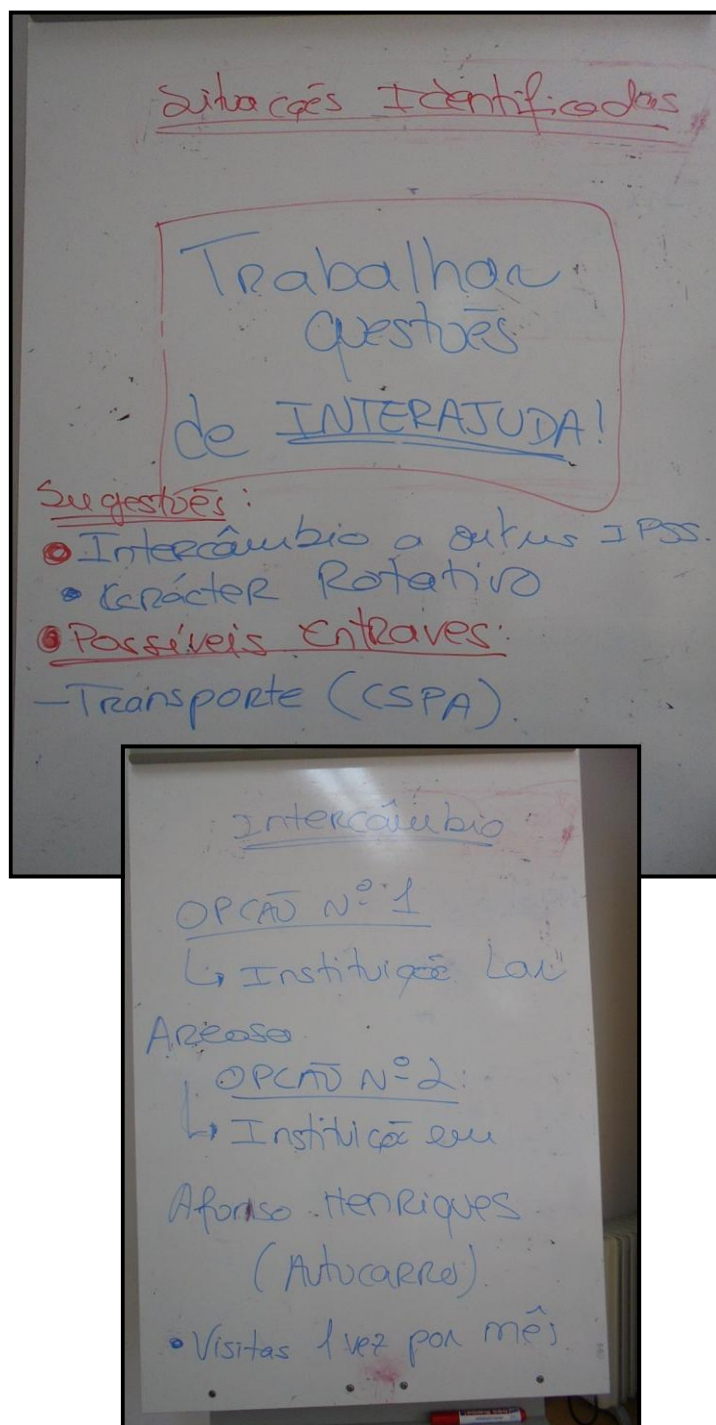 Situações Identificadas
Trabalhar
questões
de INTERAJUDA!
Sugestões:
Intercâmbio a outras IPSS.
• Carácter Rotativo
Possíveis Entraves:
- Transporte (CSPA).
Intercâmbio
OPÇÃO Nº 1
↳ Instituição Lar
Areosa
OPÇÃO Nº 2:
↳ Instituição em
Afonso Henriques
(Autocarro).
• Visitas 1 vez por mês